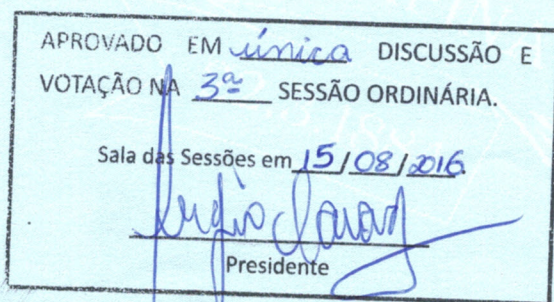 APROVADO EM única DISCUSSÃO E
VOTAÇÃO NA 3ª SESSÃO ORDINÁRIA.
Sala das Sessões em 15/08/2016
Presidente